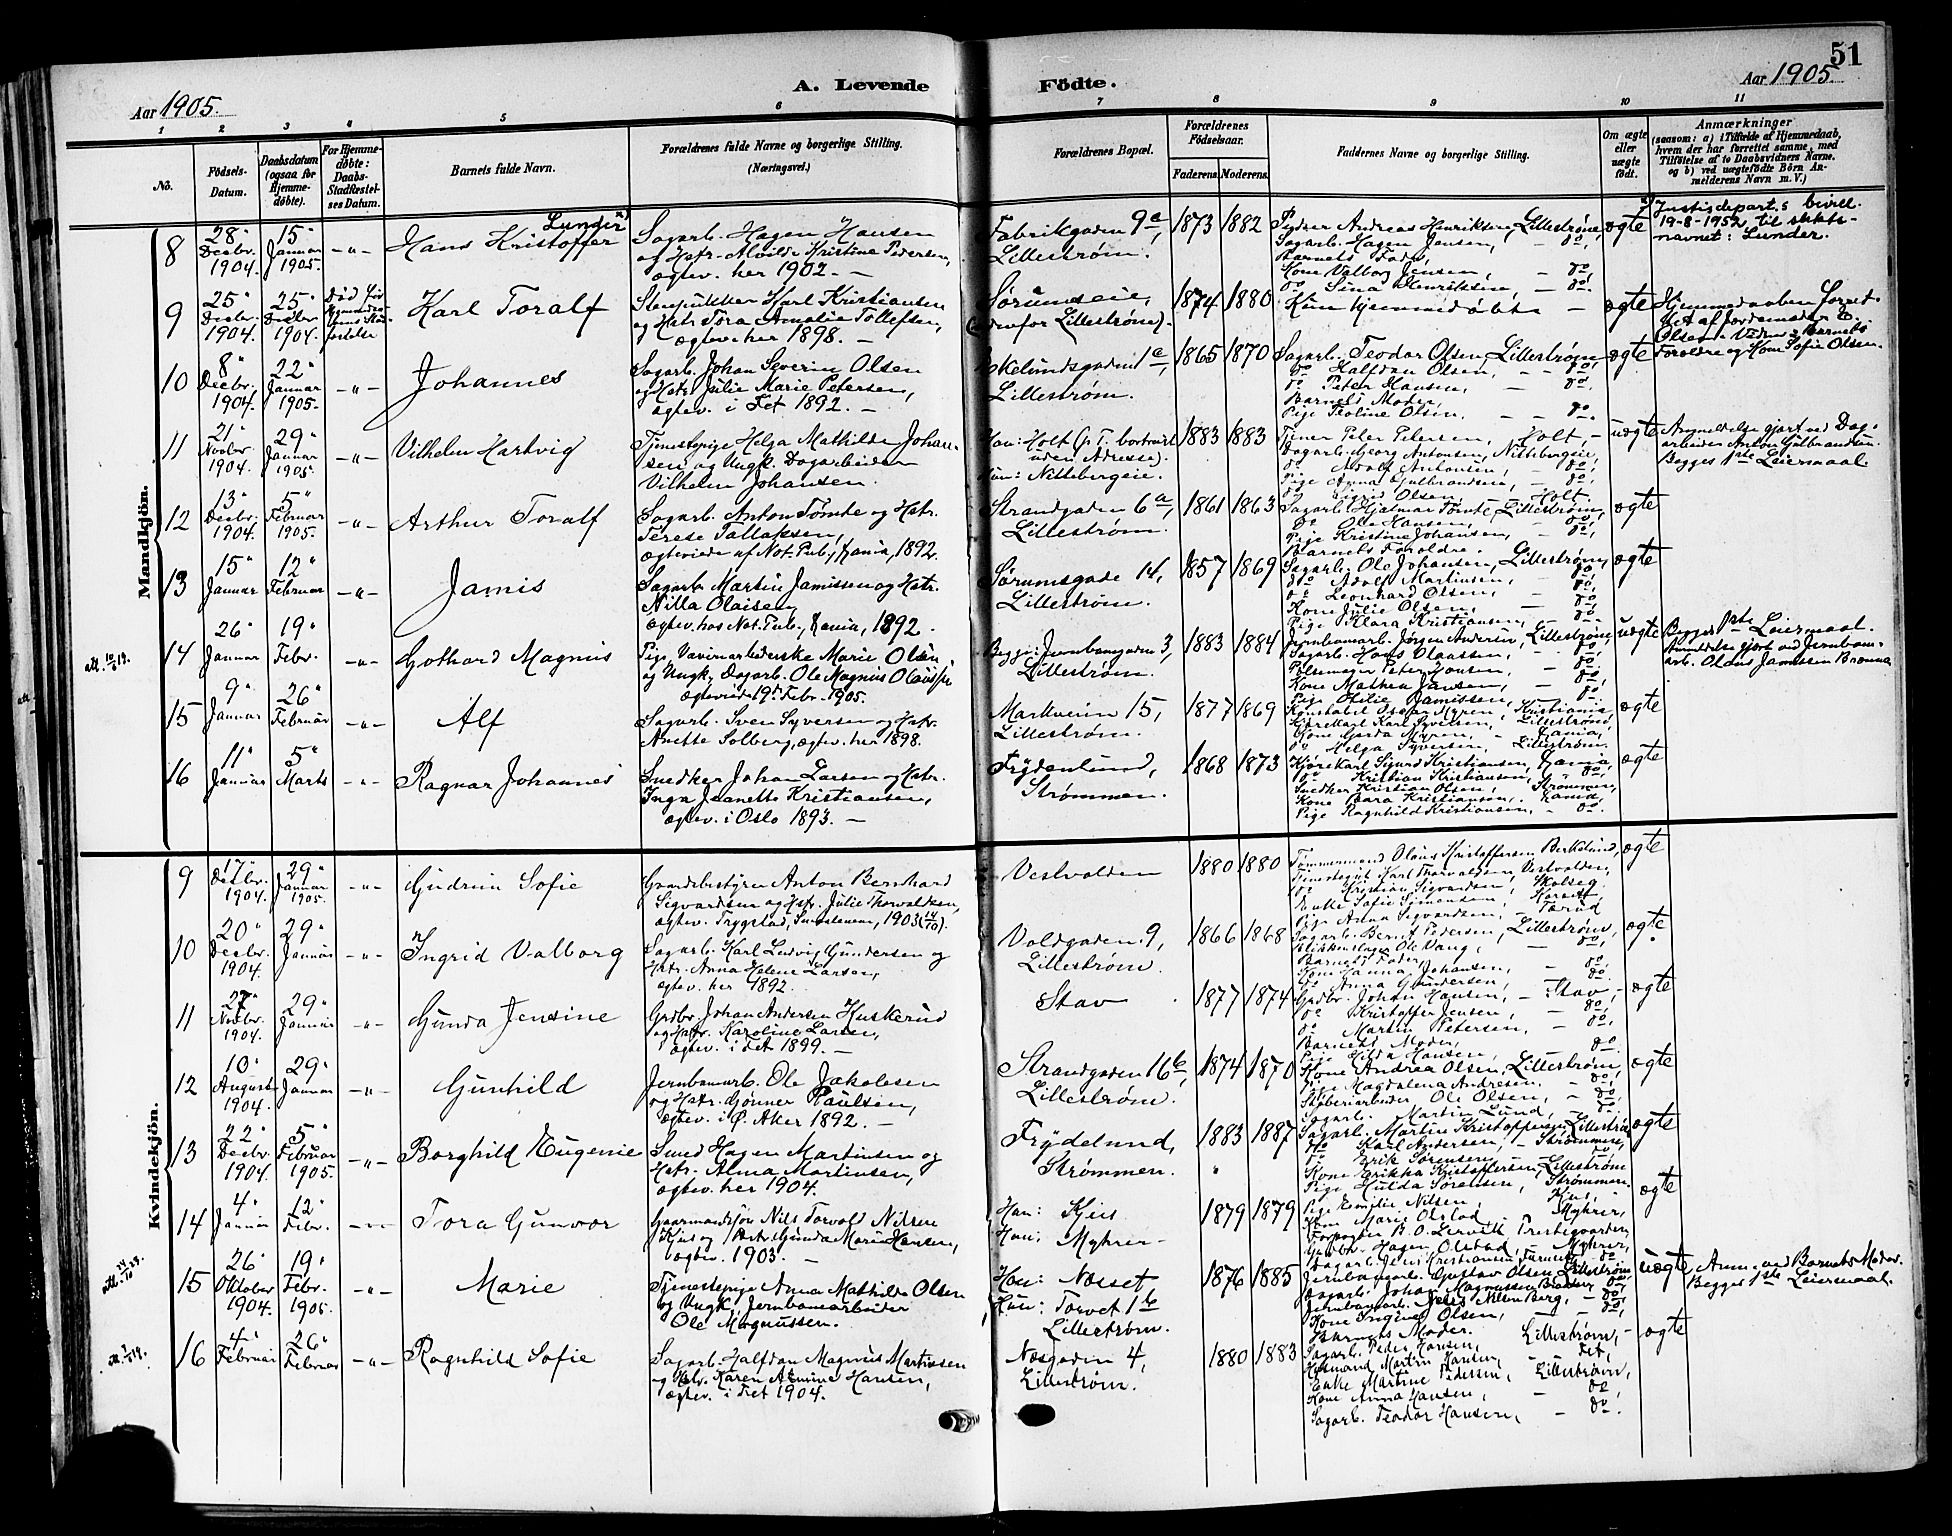 51
Aar 1905.
A. Levende Födte.
Aar 1905.
1 2 3 4 5 6 7 8 9 10 11
No.
Födsels-Datum.
Daabsdatum (ogsaa for Hjemmedöbte).
For Hjemmedöbte: Daabs-Stadfæstelses Datum.
Barnets fulde Navn.
Forældrenes fulde Navne og borgerlige Stilling.
(Næringsvei.)
Forældrenes Bopæl.
Forældrenes Födselsaar.
Faderens. Moderens.
Faddernes Navne og borgerlige Stilling.
Om ægte eller uægte födt.
Anmærkninger
(saasom: a) i Tilfælde af Hjemmedaab, hvem der har forrettet samme, med Tilföielse af to Daabsvidners Navne. og b) ved uægtefödte Börn Anmelderens Navn m. V.)
Mandkjön.
8
28' Decbr. 1904.
15' Januar 1905.
Hans Kristoffer Lunder
Sagarb. Hagen Hansen
og Hstr. Kristine Pedersen,
ægtev. her 1902. —
Fabrikgaden 9a,
Lillestrøm.
1873 1882
Andreas Henriksen, Lillestrøm,
Sagarb. Hagen Jensen, — do,
Barnets Fader,
Kone Valborg Jensen, — do,
do Lina Henriksen, — do.
ægte
Justisdepart.s bevill.
19-8-1952, til slekts-
navnet: Lunder.
9
25' Decbr. 1904.
25' Decbr. 1904.
Karl Toralf
Karl Kristiansen
og Hstr. Tora Amalie Tollefsen,
ægtev. her 1898. —
Sørumseie,
Lillestrøm).
1874 1880
Kun hjemmedøbt —
ægte
Hjemmedaaben forret-
tet af Jordemoder E.
Olsen. Vidner: Barnets
Forældre og Kone Sofie Olsen.
10
8' Decbr. 1904.
22' Januar 1905.
Johannes
Sagarb. Johan Severin Olsen
og Hstr. Julie Marie Petersen,
ægtev. i Fet 1892. —
Lillestrøm.
1865 1870
Sagarb. Teodor Olsen, Lillestrøm,
do Halfdan Olsen, — do,
do Peter Hansen, — do,
Barnets Moder,
Pige Teoline Olsen, — do.
ægte
11
21' Novbr. 1904.
29' Januar 1905.
Vilhelm Hartvig
Tjenestepige Helga Mathilde Johan-
sen og Ungk. Dagarbeider
Vilhelm Johansen.
Han: Holt (p. T. bortreist
uden Adresse).
Hun: Nittebergeie.
1883 1883
Tjener Peter Petersen, Holt,
Dagarb. Georg Antonsen, Nittebergeie,
do Adolf Antonsen, — do,
Pige Anna Gulbrandsen, — do,
do Sigrid Olsen, Holt.
uægte
Anmeldelse gjort ved Dag-
arbeider Anton Gulbrandsen.
Begges 1ste Leiermaal.
12
13' Decbr. 1904.
5' Februar 1905.
Arthur Toralf
Sagarb. Anton Tømte og Hstr.
Terese Tallaksen,
ægteviede af Not. Pub., Kania, 1892.
Strandgaden 6a,
Lillestrøm.
1861 1863
Sagarb. Hjalmar Tømte, Lillestrøm,
do Ole Hansen, — do,
Pige Kristine Johansen, — do,
Barnets Forældre.
ægte
13
15' Januar
12' Februar
Jamis
Sagarb. Martin Jamissen og Hstr.
Nilla Olaisen,
ægtev. hos Not. Pub., Kania, 1892.
Sørumsgade 14,
Lillestrøm.
1857 1869
Sagarb. Ole Johansen, Lillestrøm,
do Adolf Martinsen, — do,
do Leonhard Olsen, — do,
Kone Julie Olsen, — do,
Pige Klara Kristiansen, — do.
ægte
14
26' Januar
19' Febr.
Gothard Magnus
Pige Marie Olsen
og Ungk. Dagarb. Ole Magnus
ægteviede 19. Febr. 1905.
Begge: Jernbanegaden 3,
Lillestrøm.
1883 1884
Jernbanearb. Jørgen Andersen, Lillestrøm,
Sagarb. Hans Olaussen, — do,
Peter Hansen, — do,
Kone Mathea Jansen, — do,
Pige Otilie Jamissen, — do.
uægte
Begges 1ste Leiermaal.
Anmeldelse gjort ved Jernbane-
arb. Olaus Jamissen Brønna
15
9' Januar
26' Februar
Alf
Sagarb. Sven Syversen og Hstr.
Anette Solberg, ægtev. her 1898.
Markveien 15,
Lillestrøm.
1877 1869
Konstabel Oscar Myren, Kristiania,
Kjørekarl Karl Syversen, Lillestrøm,
Kone Gerda Myren, Kania,
do Helga Syversen, Lillestrøm.
ægte
16
11' Januar
5' Marts
Ragnar Johannes
Snedker Johan Larsen og Hstr.
Inga Jeanette Kristiansen,
ægtev. i Oslo 1893. —
Frydenlund,
Strømmen.
1868 1873
Kjørekarl Sigurd Kristiansen, Kania,
do Kristian Kristiansen, do,
Snedker Kristian Olsen, Strømmen,
Kone Bara Kristiansen, Kania,
Pige Ragnhild Kristiansen, — do.
ægte
Kvindekjön.
9
17' Decbr. 1904.
29' Januar 1905.
Gudrun Sofie
Anton Bernhard
Sigvardsen og Hstr. Julie Thorvaldsen,
ægtev. Trygstad, Smaalenene, 1903 (14/10).
Vestvolden
1880 1880
Tømmermand Olaus Kristoffersen, Berkelund,
Tjenestegut Karl Thorvaldsen, Vestvolden,
do Kristian Sigvardsen,
Enke Sofie Simonsen,
Pige Anna Sigvardsen,
ægte
10
20' Decbr. 1904.
29' Januar
Ingrid Valborg
Sagarb. Karl Ludvig Gundersen og
Hstr. Anna Helene Larsen,
ægtev. her 1892.
Voldgaden 9,
Lillestrøm.
1866 1868
Sagarb. Bernt Pedersen, Lillestrøm,
Blikkenslager Ole Vang, — do,
Barnets Fader,
Kone Hanna Johansen, — do,
do Anna Gundersen, — do.
ægte.
11
27' Novbr. 1904.
29' Januar
Gunda Jensine
Grdbr. Johan Andersen Huskerud
og Hstr. Karoline Larsen,
ægtev. i Fet 1899. —
Stav
1877 1874
Grdbr. Johan Hansen, — Stav,
do Kristoffer Jensen, — do,
do Martin Petersen, — do,
Barnets Moder,
Pige Hilda Hansen, do.
ægte
12
10' August 1904.
29' Januar
Gunhild
Jernbanearb. Ole Jakobsen
og Hstr. Gønner Paulsen,
ægtev. i Ø. Aker 1892. —
Strandgaden 16b,
Lillestrøm.
1874 1870
Kone Andrea Olsen, Lillestrøm,
Pige Magdalena Andresen, — do,
Støberiarbeider Ole Olsen, — do,
Sagarb. Martin Lund, — do.
ægte
13
22' Decbr. 1904.
5' Februar 1905.
Borghild Eugenie
Smed Hagen Martinsen og
Hstr. Alma Martinsen,
ægtev. her 1904.
Frydelund,
Strømmen.
1883 1887
Sagarb. Martin Kristoffersen, Lillestrøm,
do Karl Andersen, — Strømmen,
do Erik Sørensen, — do,
Kone Erikka Kristoffersen, Lillestrøm
Pige Hulda Sørensen, Strømmen.
ægte
14
4' Januar
12' Febr.
Tora Gunvor
Gaarmandssøn Nils Torvald Nilsen
Kjus og Hstr. Gunda Marie Hansen,
ægtev. 1903. —
Han: Kjus
Hun: Myhrer
1879 1879
Pige Emilie Nilsen, Kjus,
Kone Marie Olstad, Myhrer,
Forpagter B. O. Lervik, Prestegaarden
Gaardbr. Hagen Olstad, Myhrer,
ægte
15
26' Oktober 1904.
19' Febr. 1905.
Marie
Tjenestepige Anna Mathilde Olsen
og Ungk. Jernbanearbeider
Ole Magnussen.
Han: Næsset
Hun: Torvet 1b
Lillestrøm.
1876 1885
Jernbanearb. Gustav Olsen, Lillestrøm,
Sagarb. Johan Magnussen, do,
Jernbanearb. Jens Nilsen Berg, — do,
Kone Ingine Olsen, — do,
Barnets Moder.
uægte
Anm. ved Barnets Moder.
Begges 1ste Leiermaal.
16
4' Februar
26' Februar
Ragnhild Sofie
Sagarb. Halfdan Magnus Martinsen
og Hstr. Karen Elmine Hansen,
ægtev. i Fet 1904.
Næsgaden 4,
Lillestrøm.
1880 1883
Sagarb. Peder Hansen, Lillestrøm,
Husmand Martin Hansen, Fet,
Enke Martine Pedersen, Lillestrøm,
Kone Anna Hansen, — do,
Sagarb. Teodor Hansen, — do.
ægte